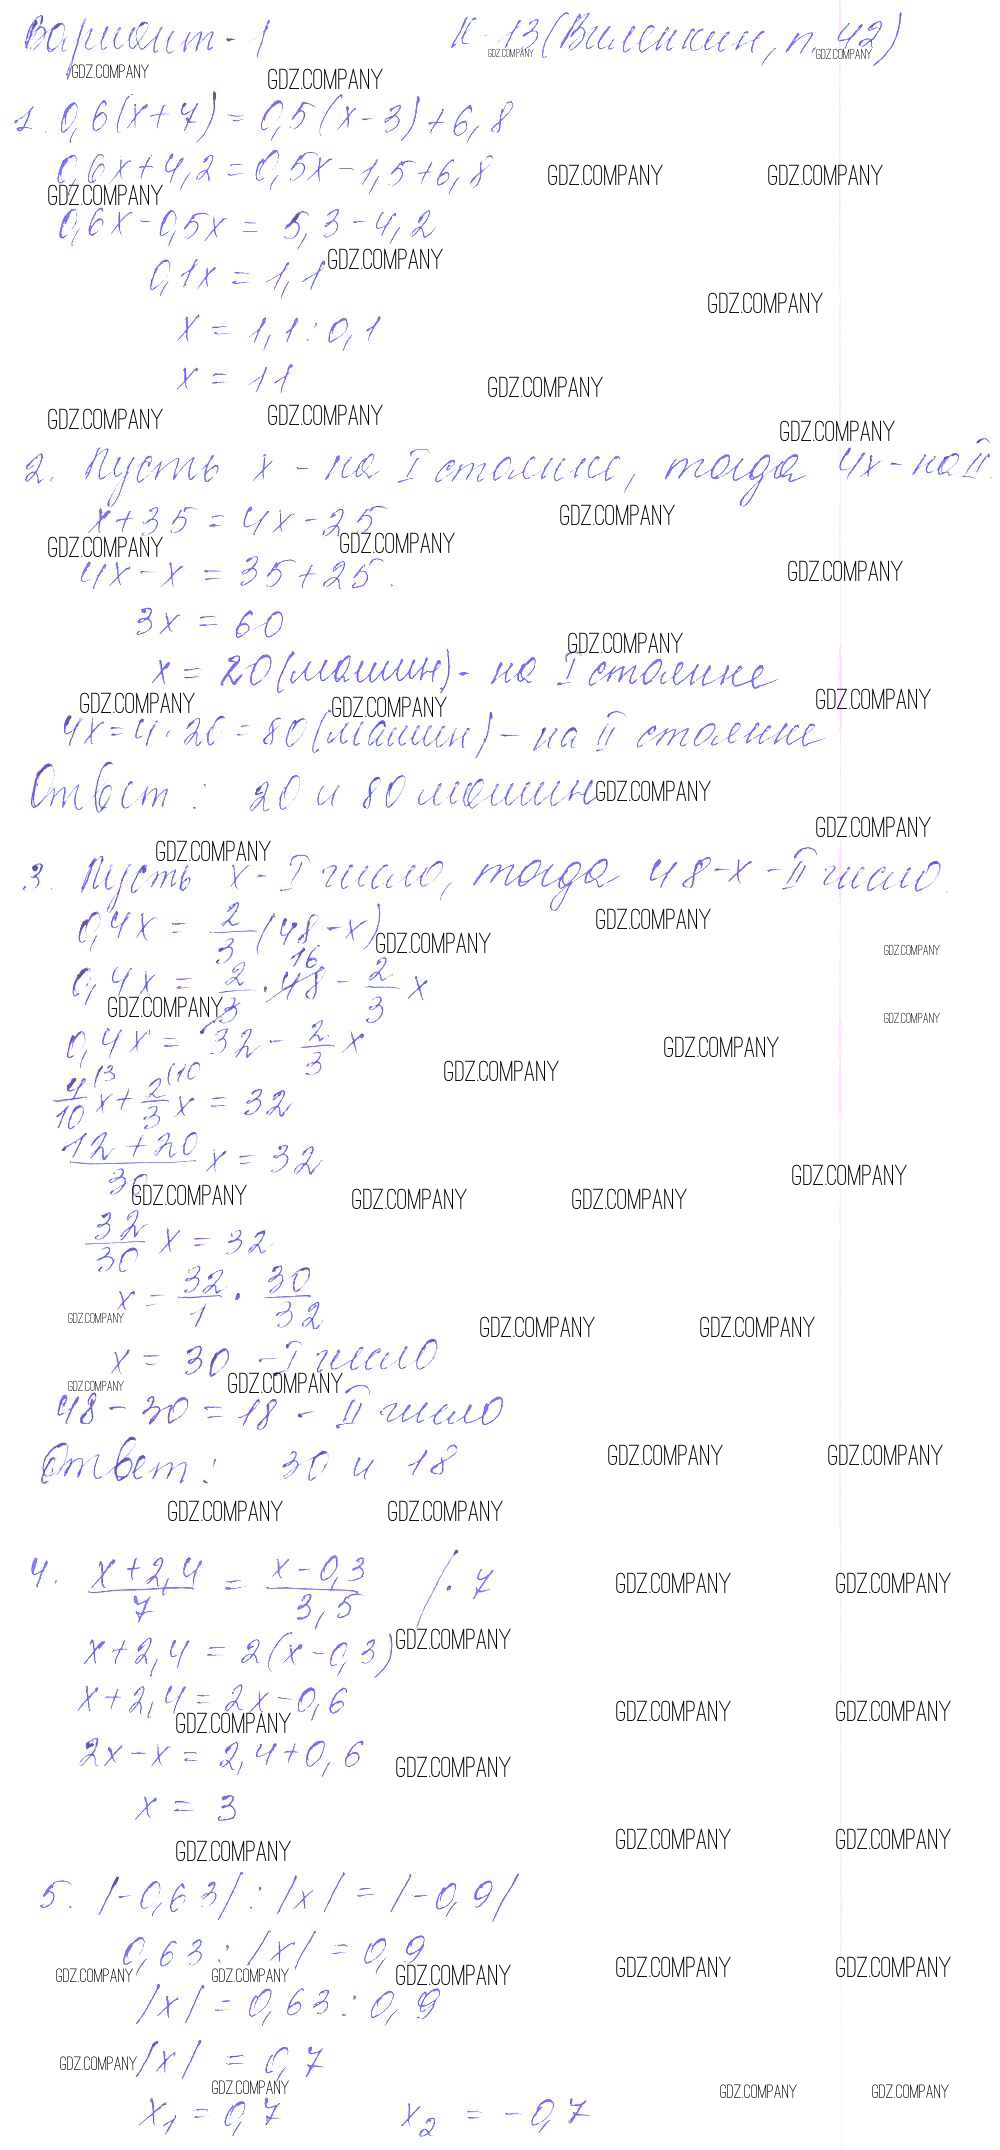 Вариант - 1 К-13 (Виленкин, п. 42)
1. 0,6(x+7) = 0,5(x-3)+6,8
0,6x+4,2=0,5x-1,5+6,8
0,6x-0,5x = 5,3-4,2
0,1x = 1,1
x = 1,1:0,1
x = 11
2. Пусть x - на I стоянке, тогда 4x - на II.
x+35 = 4x-25
4x-x = 35+25.
3x = 60
x = 20 (машин) - на I стоянке
4x=4·20=80 (машин) - на II стоянке
Ответ: 20 и 80 машин
3. Пусть x - I число, тогда 48-x - II число.
0,4x = 2/3 (48-x)
0,4x = 2/3 · 48 16 - 2/3 x
0,4x = 32 - 2/3 x
4/10 (3 x + 2/3 (10 x = 32
12+20/30 x = 32
32/30 x = 32
x = 32/1 · 30/32
x = 30 - I число
48-30=18 - II число
Ответ: 30 и 18
4. x+2,4/7 = x-0,3/3,5 /·7
x+2,4 = 2(x-0,3)
x+2,4=2x-0,6
2x-x = 2,4+0,6
x = 3
5. |-0,63| : |x| = |-0,9|
0,63 : |x| = 0,9
|x| = 0,63 : 0,9
|x| = 0,7
x1 = 0,7 x2 = -0,7
GDZ.COMPANY